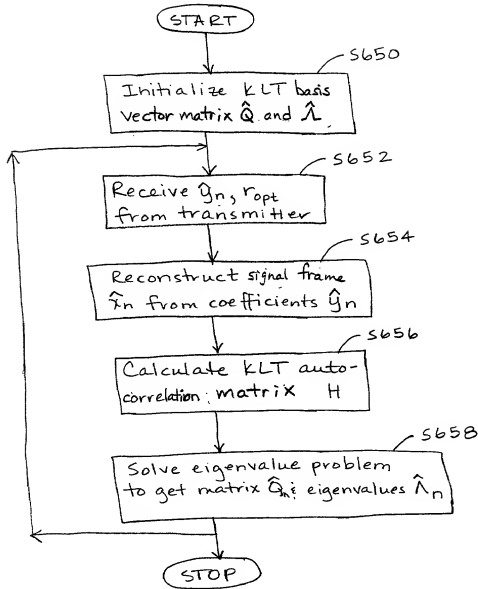 START
S650
Initialize KLT basis
vector matrix Q̂ and Λ̂.
S652
Receive ŷn, ropt
from transmitter
S654
Reconstruct signal frame
x̂n from coefficients ŷn
S656
Calculate KLT auto-
correlation: matrix H
S658
Solve eigenvalue problem
to get matrix Q̂n & eigenvalues Λ̂n
STOP